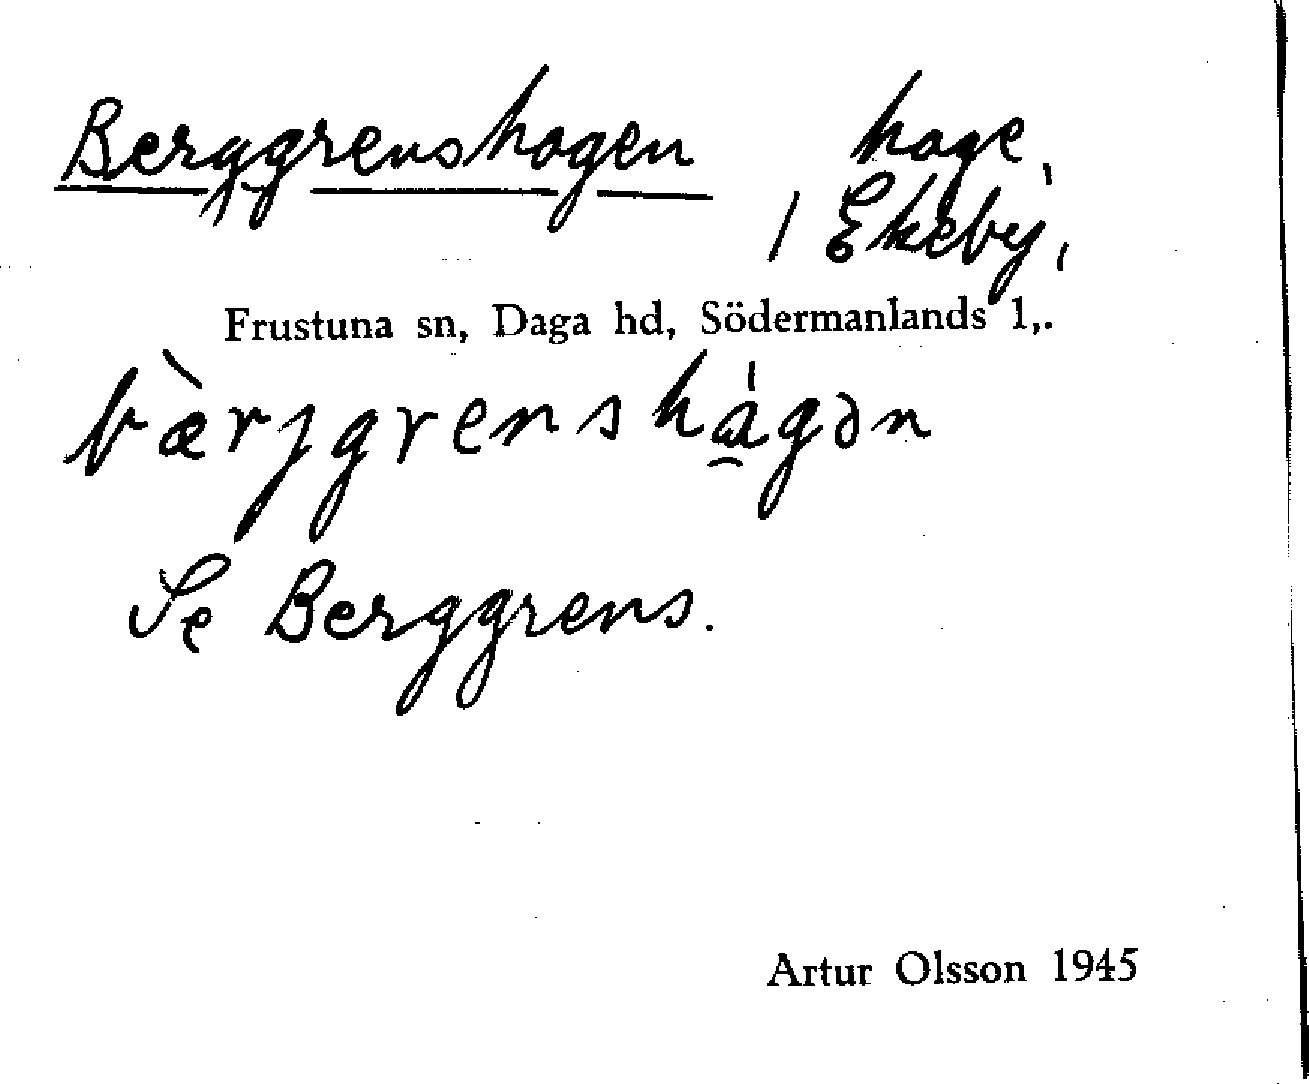 Berggrenshagen hage,
/ Ekeby,
Frustuna sn, Daga hd, Södermanlands l,.
bæ̀rjgrenshágən
Se Berggrens.
Artur Olsson 1945